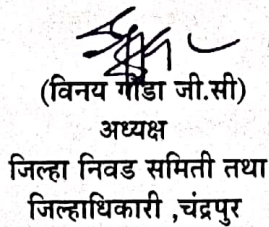 (विनय गौडा जी.सी)
अध्यक्ष
जिल्हा निवड समिती तथा
जिल्हाधिकारी ,चंद्रपुर